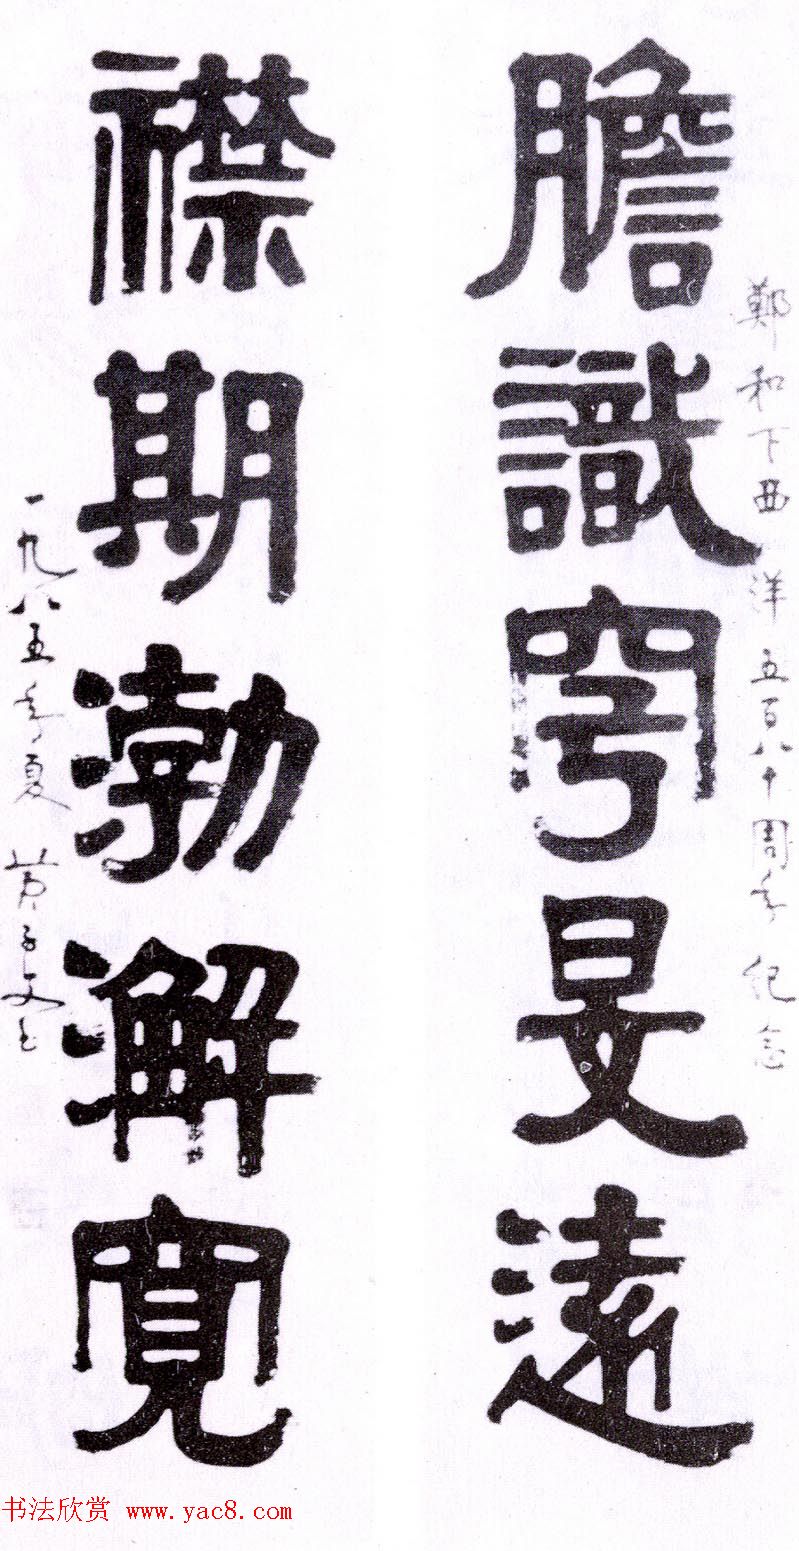 鄭和下西洋五百八十周年纪念
膽識穹旻遠
襟期渤澥寬
一九八五年夏
书法欣赏 www.yac8.com